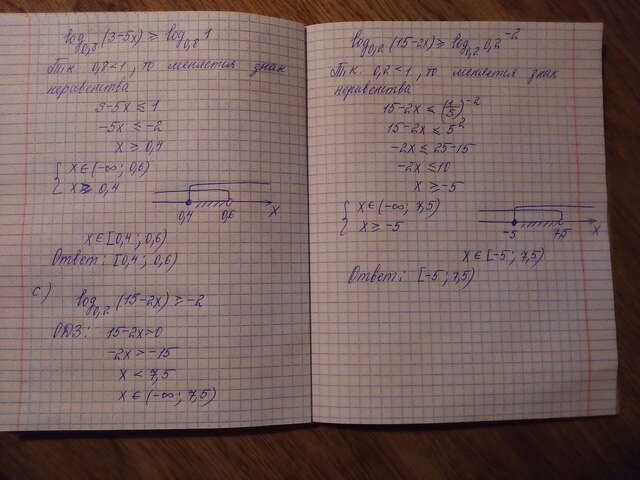 log₀,₈(3-5x) ≥ log₀,₈1
Т.к. 0,8<1, то меняется знак
неравенства
3-5x ≤ 1
-5x ≤ -2
x ≥ 0,4
{ x∈(-∞; 0,6)
x ≥ 0,4
0,4 0,6 x
x∈[0,4; 0,6)
Ответ: [0,4; 0,6)
c)
log₀,₂(15-2x) ≥ -2
ОДЗ: 15-2x>0
-2x>-15
x < 7,5
x∈(-∞; 7,5)
log₀,₂(15-2x) ≥ log₀,₂0,2⁻²
Т.к. 0,2<1, то меняется знак
неравенства
15-2x ≤ (1/5)⁻²
15-2x ≤ 5²
-2x ≤ 25-15
-2x ≤ 10
x ≥ -5
{ x∈(-∞; 7,5)
x ≥ -5
-5 7,5 x
x∈[-5; 7,5)
Ответ: [-5; 7,5)